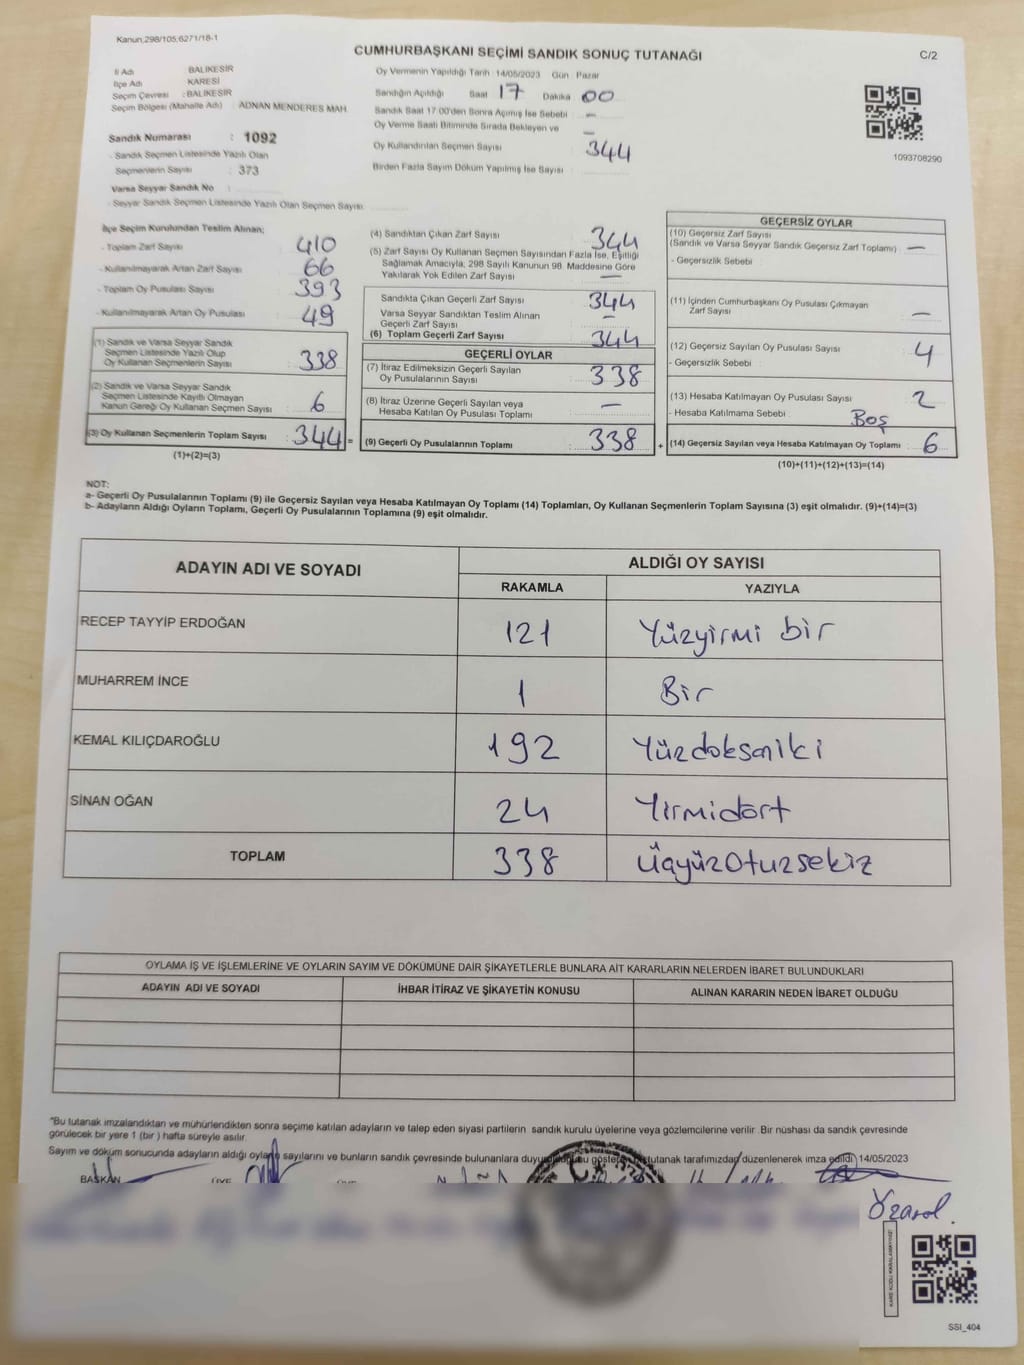 Kanun;298/105,6271/18-1
CUMHURBAŞKANI SEÇİMİ SANDIK SONUÇ TUTANAĞI
C/2
İl Adı BALIKESİR
İlçe Adı KARESİ
Seçim Çevresi : BALIKESİR
Seçim Bölgesi (Mahalle Adı) : ADNAN MENDERES MAH.
Sandık Numarası : 1092
- Sandık Seçmen Listesinde Yazılı Olan
Seçmenlerin Sayısı : 373
Varsa Seyyar Sandık No :
- Seyyar Sandık Seçmen Listesinde Yazılı Olan Seçmen Sayısı
Oy Vermenin Yapıldığı Tarih :14/05/2023 Gün : Pazar
Sandığın Açıldığı Saat 17 Dakika 00
Sandık Saat 17:00'den Sonra Açmış İse Sebebi : –
Oy Verme Saati Bitiminde Sırada Bekleyen ve –
Oy Kullandırılan Seçmen Sayısı : 344
Birden Fazla Sayım Döküm Yapılmış İse Sayısı :
1093708290
İlçe Seçim Kurulundan Teslim Alınan;
- Toplam Zarf Sayısı : 410
- Kullanılmayarak Artan Zarf Sayısı : 66
- Toplam Oy Pusulası Sayısı : 393
- Kullanılmayarak Artan Oy Pusulası : 49
(1) Sandık ve Varsa Seyyar Sandık
Seçmen Listesinde Yazılı Olup
Oy Kullanan Seçmenlerin Sayısı : 338
(2) Sandık ve Varsa Seyyar Sandık
Seçmen Listesinde Kayıtlı Olmayan
Kanun Gereği Oy Kullanan Seçmen Sayısı : 6
(3) Oy Kullanan Seçmenlerin Toplam Sayısı : 344 =
(1)+(2)=(3)
(4) Sandıktan Çıkan Zarf Sayısı : 344
(5) Zarf Sayısı Oy Kullanan Seçmen Sayısından Fazla İse, Eşitliği
Sağlamak Amacıyla, 298 Sayılı Kanunun 98. Maddesine Göre
Yakılarak Yok Edilen Zarf Sayısı : –
Sandıkta Çıkan Geçerli Zarf Sayısı : 344
Varsa Seyyar Sandıktan Teslim Alınan
Geçerli Zarf Sayısı : –
(6) Toplam Geçerli Zarf Sayısı : 344
GEÇERLİ OYLAR
(7) İtiraz Edilmeksizin Geçerli Sayılan
Oy Pusulalarının Sayısı : 338
(8) İtiraz Üzerine Geçerli Sayılan veya
Hesaba Katılan Oy Pusulası Toplamı : –
(9) Geçerli Oy Pusulalarının Toplamı : 338 +
GEÇERSİZ OYLAR
(10) Geçersiz Zarf Sayısı
(Sandık ve Varsa Seyyar Sandık Geçersiz Zarf Toplamı) : –
- Geçersizlik Sebebi :
(11) İçinden Cumhurbaşkanı Oy Pusulası Çıkmayan
Zarf Sayısı : –
(12) Geçersiz Sayılan Oy Pusulası Sayısı : 4
- Geçersizlik Sebebi :
(13) Hesaba Katılmayan Oy Pusulası Sayısı : 2
- Hesaba Katılmama Sebebi : Boş
(14) Geçersiz Sayılan veya Hesaba Katılmayan Oy Toplamı : 6
(10)+(11)+(12)+(13)=(14)
NOT:
a- Geçerli Oy Pusulalarının Toplamı (9) ile Geçersiz Sayılan veya Hesaba Katılmayan Oy Toplamı (14) Toplamları, Oy Kullanan Seçmenlerin Toplam Sayısına (3) eşit olmalıdır. (9)+(14)=(3)
b- Adayların Aldığı Oyların Toplamı, Geçerli Oy Pusulalarının Toplamına (9) eşit olmalıdır.
ADAYIN ADI VE SOYADI
ALDIĞI OY SAYISI
RAKAMLA YAZIYLA
RECEP TAYYİP ERDOĞAN 121 Yüzyirmi bir
MUHARREM İNCE 1 Bir
KEMAL KILIÇDAROĞLU 192 Yüzdoksaniki
SİNAN OĞAN 24 Yirmidört
TOPLAM 338 Üçyüzotuzsekiz
OYLAMA İŞ VE İŞLEMLERİNE VE OYLARIN SAYIM VE DÖKÜMÜNE DAİR ŞİKAYETLERLE BUNLARA AİT KARARLARIN NELERDEN İBARET BULUNDUKLARI
ADAYIN ADI VE SOYADI İHBAR İTİRAZ VE ŞİKAYETİN KONUSU ALINAN KARARIN NEDEN İBARET OLDUĞU
*Bu tutanak imzalandıktan ve mühürlendikten sonra seçime katılan adayların ve talep eden siyasi partilerin sandık kurulu üyelerine veya gözlemcilerine verilir. Bir nüshası da sandık çevresinde
görülecek bir yere 1 (bir ) hafta süreyle asılır.
Sayım ve döküm sonucunda adayların aldığı oyların sayılarını ve bunların sandık çevresinde bulunanlara tutanak tarafımızdan düzenlenerek imza edildi. 14/05/2023
BAŞKAN ÜYE
KARE KODU KARALAMAYINIZ!
SSI_404